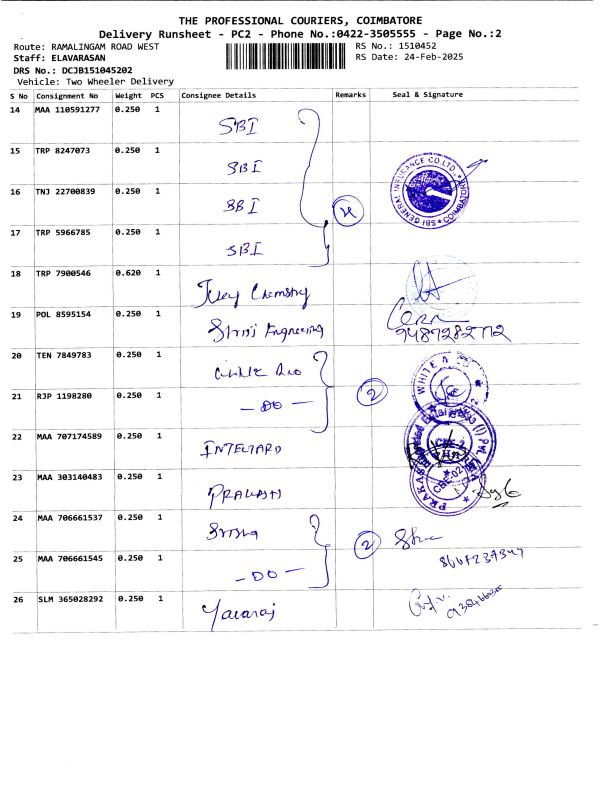 THE PROFESSIONAL COURIERS, COIMBATORE
Delivery Runsheet - PC2 - Phone No.:0422-3505555 - Page No.:2
Route: RAMALINGAM ROAD WEST
RS No.: 1510452
Staff: ELAVARASAN
RS Date: 24-Feb-2025
DRS No.: DCJB151045202
Vehicle: Two Wheeler Delivery
S No Consignment No Weight PCS Consignee Details Remarks Seal & Signature
14 MAA 110591277 0.250 1 SBI
15 TRP 8247073 0.250 1 SBI
16 TNJ 22700839 0.250 1 SBI
17 TRP 5966785 0.250 1 SBI
SBI GENERAL INSURANCE CO LTD. COIMBATORE
18 TRP 7900546 0.620 1 Chemistry
19 POL 8595154 0.250 1 Engineering
20 TEN 7849783 0.250 1
21 RJP 1198280 0.250 1 - DO - 2
22 MAA 707174589 0.250 1
23 MAA 303140483 0.250 1 PRAKASH
24 MAA 706661537 0.250 1
2
25 MAA 706661545 0.250 1 - DO -
26 SLM 365028292 0.250 1 Yavaraj